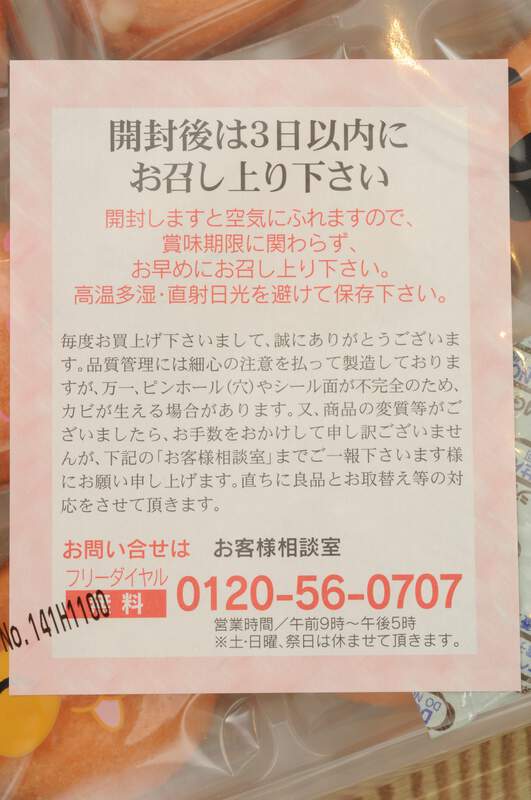 開封後は3日以内に
お召し上り下さい
開封しますと空気にふれますので、
賞味期限に関わらず、
お早めにお召し上り下さい。
高温多湿・直射日光を避けて保存下さい。
毎度お買上げ下さいまして、誠にありがとうございま
す。品質管理には細心の注意を払って製造しておりま
すが、万一、ピンホール(穴)やシール面が不完全のため、
カビが生える場合があります。又、商品の変質等がご
ざいましたら、お手数をおかけして申し訳ございませ
んが、下記の「お客様相談室」までご一報下さいます様
にお願い申し上げます。直ちに良品とお取替え等の対
応をさせて頂きます。
お問い合せは お客様相談室
フリーダイヤル
無料 0120-56-0707
営業時間/午前9時〜午後5時
※土・日曜、祭日は休ませて頂きます。
No. 141H1100
DO NO